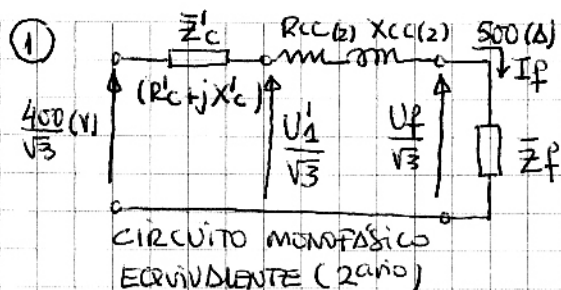 ①
Z̄'c RCC(2) XCC(2) 500(A)
(R'c+jX'c) If
400/√3 (V) U'1/√3 Uf/√3 Z̄f
CIRCUITO MONOFÁSICO
EQUIVALENTE (2ario)